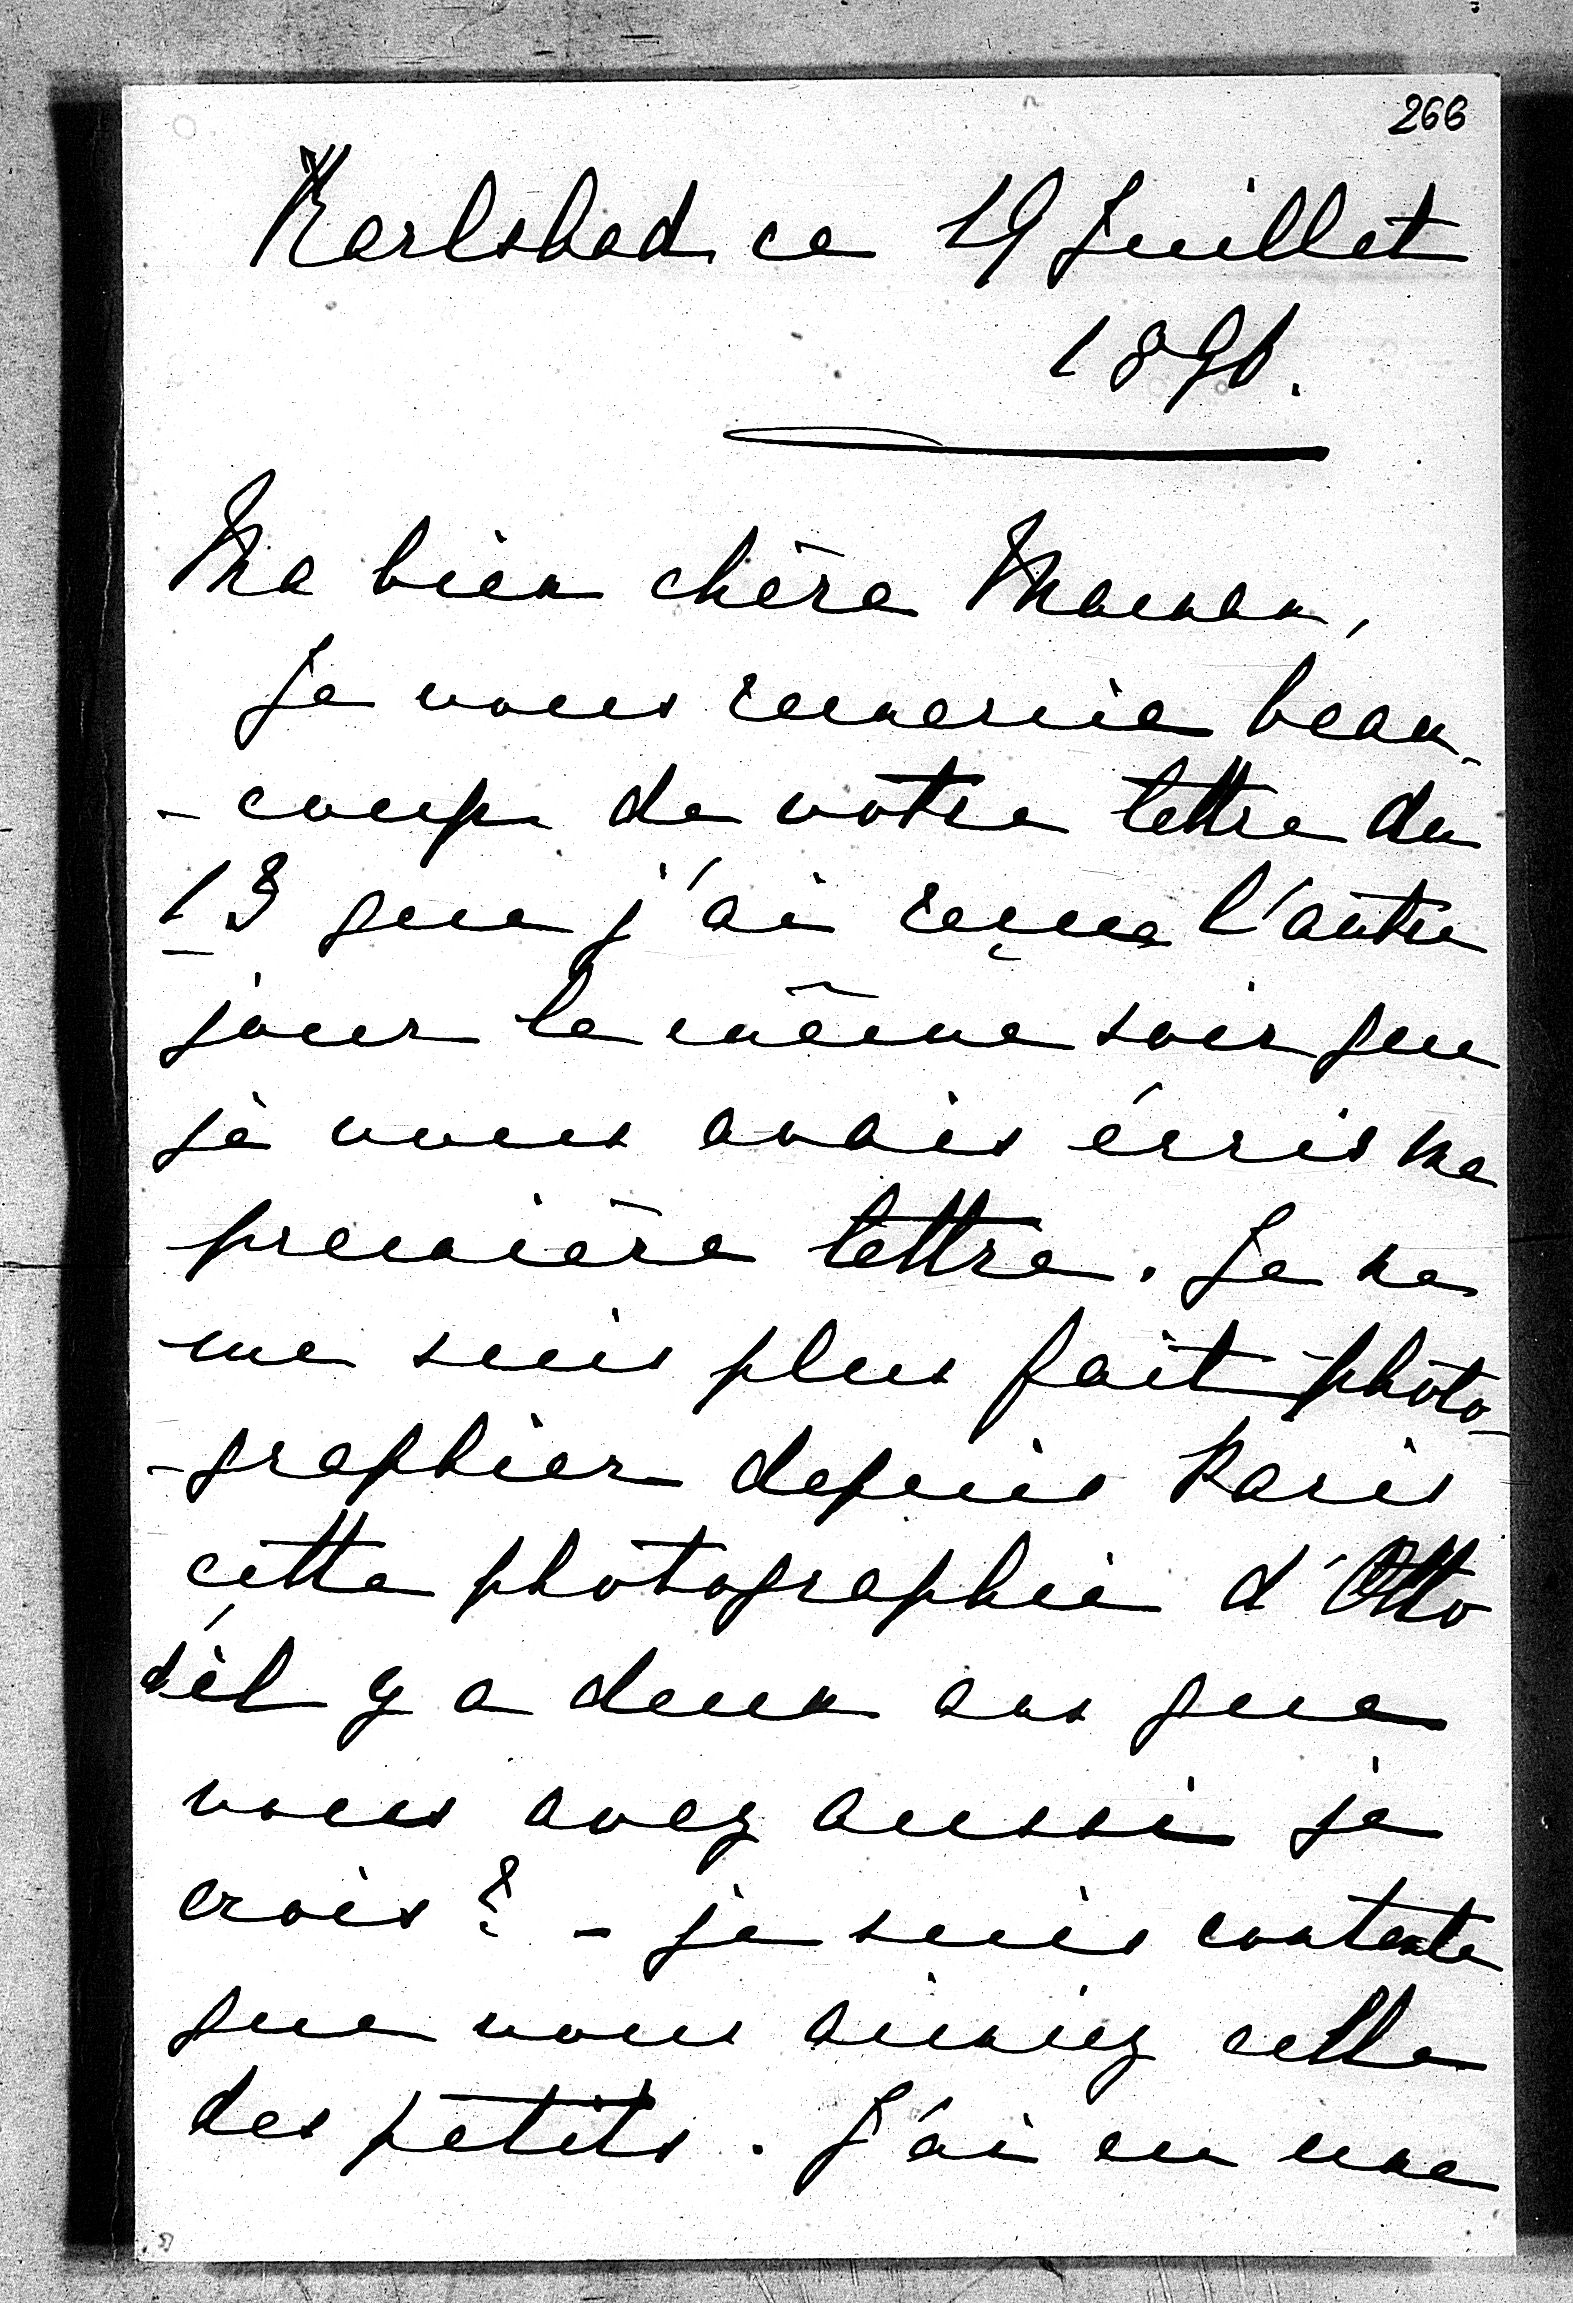 266
Karlsbad ce 19 Juillet
1896.
Ma bien chère Maman,
Je vous remercie beau-
-coup de votre lettre du
13 que j'ai reçue l'autre
jour le même soir que
je vous avais écris ma
première lettre. Je ne
me suis plus fait photo-
-graphier depuis Paris
cette photographie d'Otto
d'il y a deux ans que
vous avez aussi je
crois? - je suis contente
que vous aimiez celle
des petits. J'ai eu une